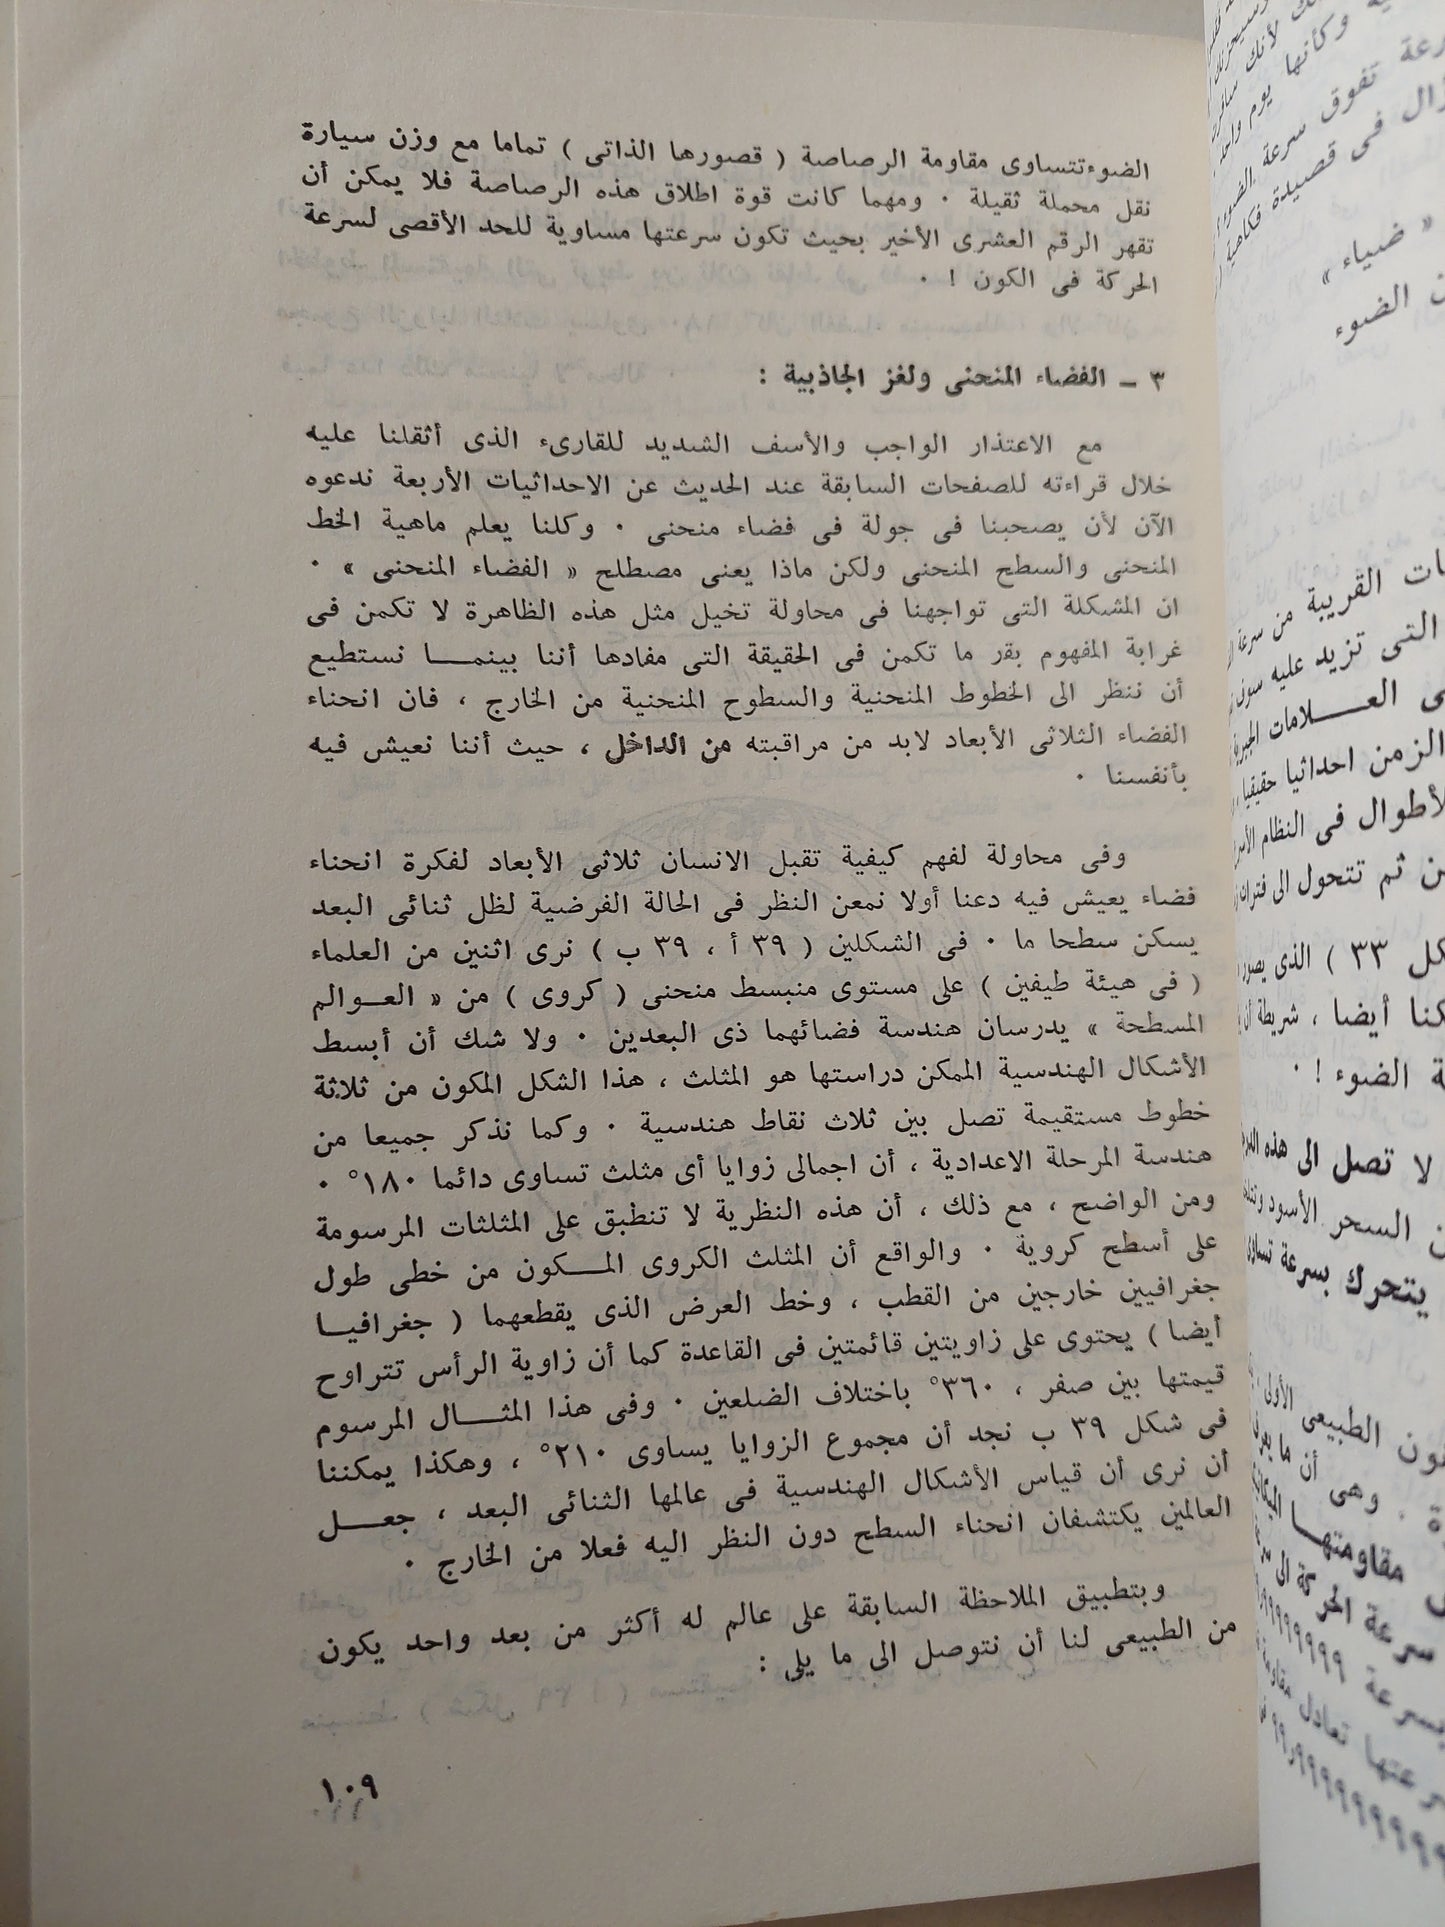 الضوءتتساوى مقاومة الرصاصة ( قصورها الذاتى ) تماما مع وزن سيارة
نقل محملة ثقيلة ٠ ومهما كانت قوة اطلاق هذه الرصاصة فلا يمكن أن
تقهر الرقم العشرى الأخير بحيث تكون سرعتها مساوية للحد الأقصى لسرعة
الحركة فى الكون ! ٠
٣ ـ الفضاء المنحنى ولغز الجاذبية :
مع الاعتذار الواجب والأسف الشديد للقارىء الذى أثقلنا عليه
خلال قراءته للصفحات السابقة عند الحديث عن الاحداثيات الأربعة ندعوه
الآن لأن يصحبنا فى جولة فى فضاء منحنى ٠ وكلنا يعلم ماهية الخط
المنحنى والسطح المنحنى ولكن ماذا يعنى مصطلح « الفضاء المنحنى » ٠
ان المشكلة التى تواجهنا فى محاولة تخيل مثل هذه الظاهرة لا تكمن فى
غرابة المفهوم بقر ما تكمن فى الحقيقة التى مفادها أننا بينمـــا نستطيع
أن ننظر الى الخطوط المنحنية والسطوح المنحنية من الخارج ، فان انحناء
الفضاء الثلاثى الأبعاد لابد من مراقبته من الداخل ، حيث أننا نعيش فيه
بأنفسنا ٠
وفى محاولة لفهم كيفية تقبل الانسان ثلاثى الأبعاد لفكرة انحناء
فضاء يعيش فيه دعنا أولا نمعن النظر فى الحالة الفرضية لظل ثنائى البعد
يسكن سطحا ما ٠ فى الشكلين ( ٣٩ أ ، ٣٩ ب ) نرى اثنين من العلماء
( فى هيئة طيفين ) على مستوى منبسط منحنى ( كروى ) من « العـوالم
المسطحة » يدرسان هندسة فضائهما ذى البعدين ٠ ولا شك أن أبسط
الأشكال الهندسية الممكن دراستها هو المثلث ، هذا الشكل المكون من ثلاثة
خطوط مستقيمة تصل بين ثلاث نقاط هندسية ٠ وكما نذكر جميعا من
هندسة المرحلة الاعدادية ، أن اجمالى زوايا أى مثلث تساوى دائما ١٨٠° ٠
ومن الواضح ، مع ذلك ، أن هذه النظرية لا تنطبق على المثلثات المرسومة
على أسطح كروية ٠ والواقع أن المثلث الكروى المـــكون من خطى طول
جغرافيين خارجين من القطب ، وخط العرض الذى يقطعهما ( جغرافيــا
أيضا ) يحتوى على زاويتين قائمتين فى القاعدة كما أن زاوية الرأس تتراوح
قيمتها بين صفر ، ٣٦٠° باختلاف الضلعين ٠ وفى هذا المثـــال المرسوم
فى شكل ٣٩ ب نجد أن مجموع الزوايا يساوى ٢١٠° ، وهكذا يمكننا
أن نرى أن قياس الأشكال الهندسية فى عالمها الثنائى البعد ، جعـــل
العالمين يكتشفان انحناء السطح دون النظر اليه فعلا من الخارج ٠
وبتطبيق الملاحظة السابقة على عالم له أكثر من بعد واحد يكون
من الطبيعى لنا أن نتوصل الى ما يلى :
١٠٩
« ضياء »
ن الضوء
القريبة من سرعة
التى تزيد عليه سوف
العـــلامات
الزمن احداثيا حقيقيا
لأطوال فى النظام
ن ثم تتحول الى
كل ٣٣ ) الذى يصور
أيضا ، شريطة أن
ة الضوء ! ٠
لا تصل الى هذه
السحر الأسود
يتحرك بسرعة
الطبيعى الأولى
وهى أن ما
مقاومتها
سرعة الحركة الى